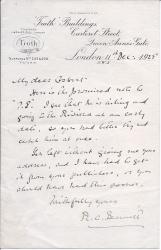 Truth Buildings,
Carteret Street,
Queen Anne's Gate,
London, 11th Dec. 1925
Truth
My dear
Here is the promised note to
I see that he is ailing and
going to the Riviera at an early
date, so you had better try and
catch him at once.
You left without giving me your
address, and I have had to get
it from your publishers, or you
should have had this sooner.
Faithfully yours
R. A. Bennett